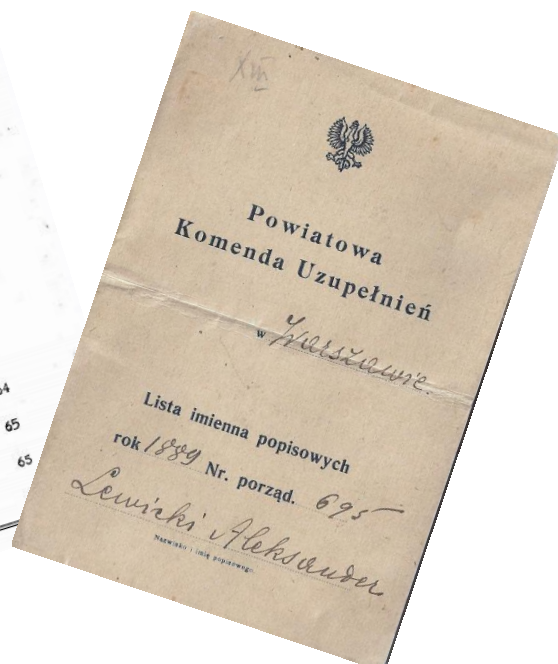 XIII
Powiatowa
Komenda Uzupełnień
w Warszawie.
Lista imienna popisowych
rok 1889 Nr. porząd. 695
Lewicki Aleksander
Nazwisko i imię popisowego.
65
65